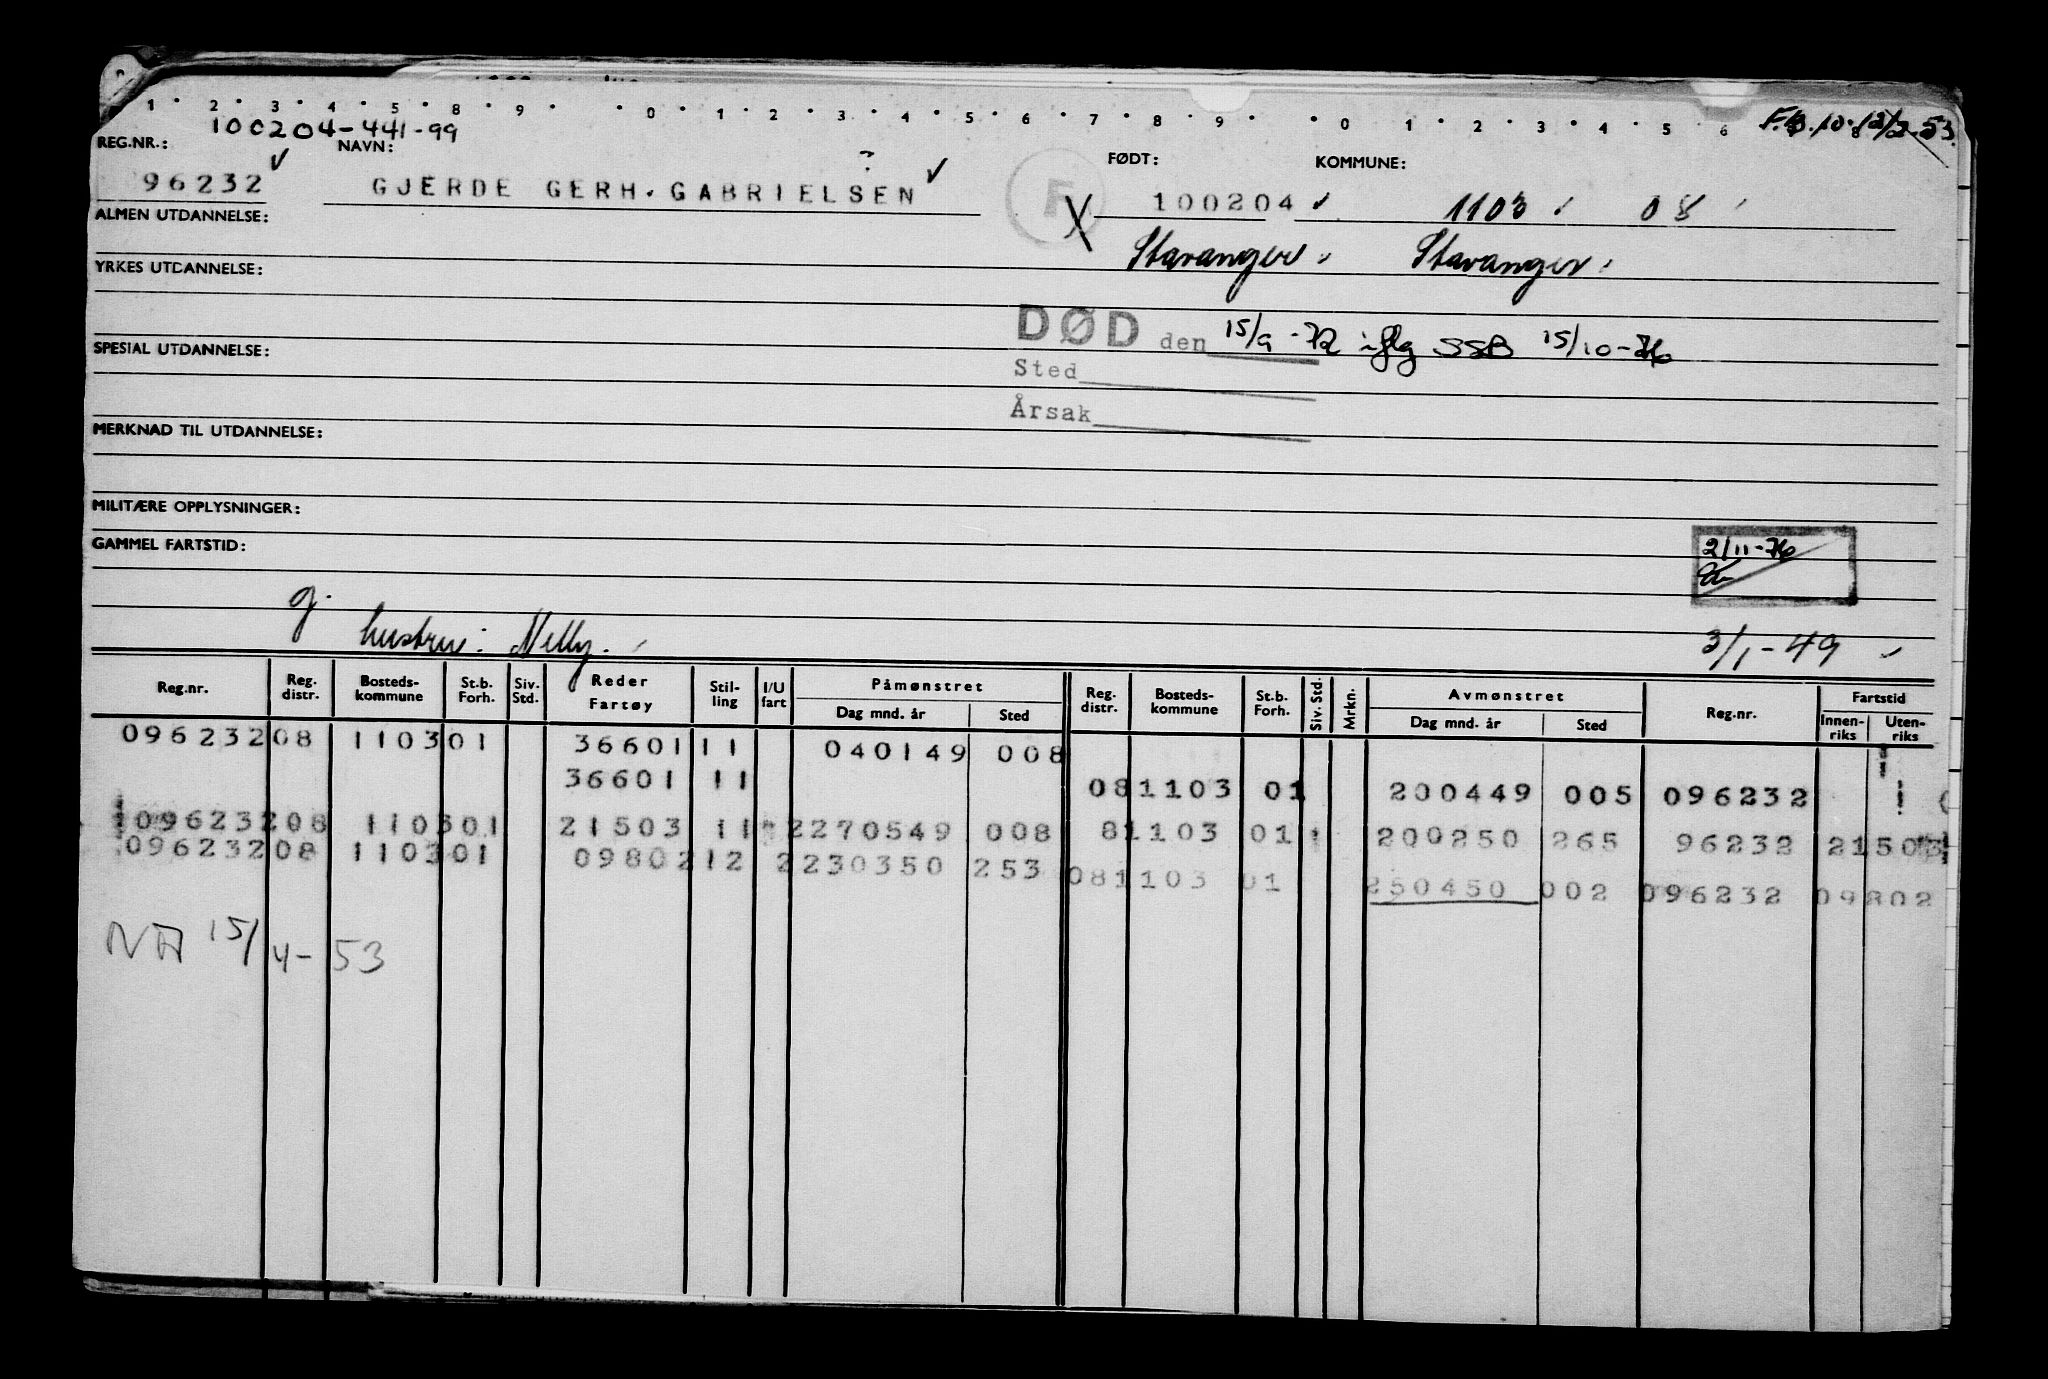 1 2 3 4 5 8 9 0 1 2 3 4 5 6 7 8 9 0 1 2 3 4 5 6 8
100204-441-99 F.B. 10. 12/2.53.
REG.NR.: NAVN: ? FØDT: KOMMUNE:
96232 GJERDE GERH. GABRIELSEN F X 100204 1103 08
ALMEN UTDANNELSE:
Stavanger Stavanger
YRKES UTDANNELSE:
DØD den 15/9 -72 iflg SSB 15/10-76
SPESIAL UTDANNELSE:
Sted
Årsak
MERKNAD TIL UTDANNELSE:
MILITÆRE OPPLYSNINGER:
GAMMEL FARTSTID:
2/11-76
g.
hustru: Nelly.
3/1-49
Reg.nr. Reg. distr. Bosteds- kommune St.b. Forh. Siv. Std. Reder Fartøy Stil- ling I/U fart Påmønstret Dag mnd. år Sted Reg. distr. Bosteds- kommune St.b. Forh. Siv. Std. Mrkn. Avmønstret Dag mnd. år Sted Reg.nr. Fartstid Innen- riks Uten- riks
096232 08 1103 01 36601 11 040149 008
36601 11 08 1103 01 200449 005 096232
096232 08 1103 01 21503 11 2 270549 008 8 1103 01 200250 265 96232 21503
096232 08 1103 01 09802 12 2 230350 253 08 1103 01 250450 002 096232 09802
NA 15/4-53